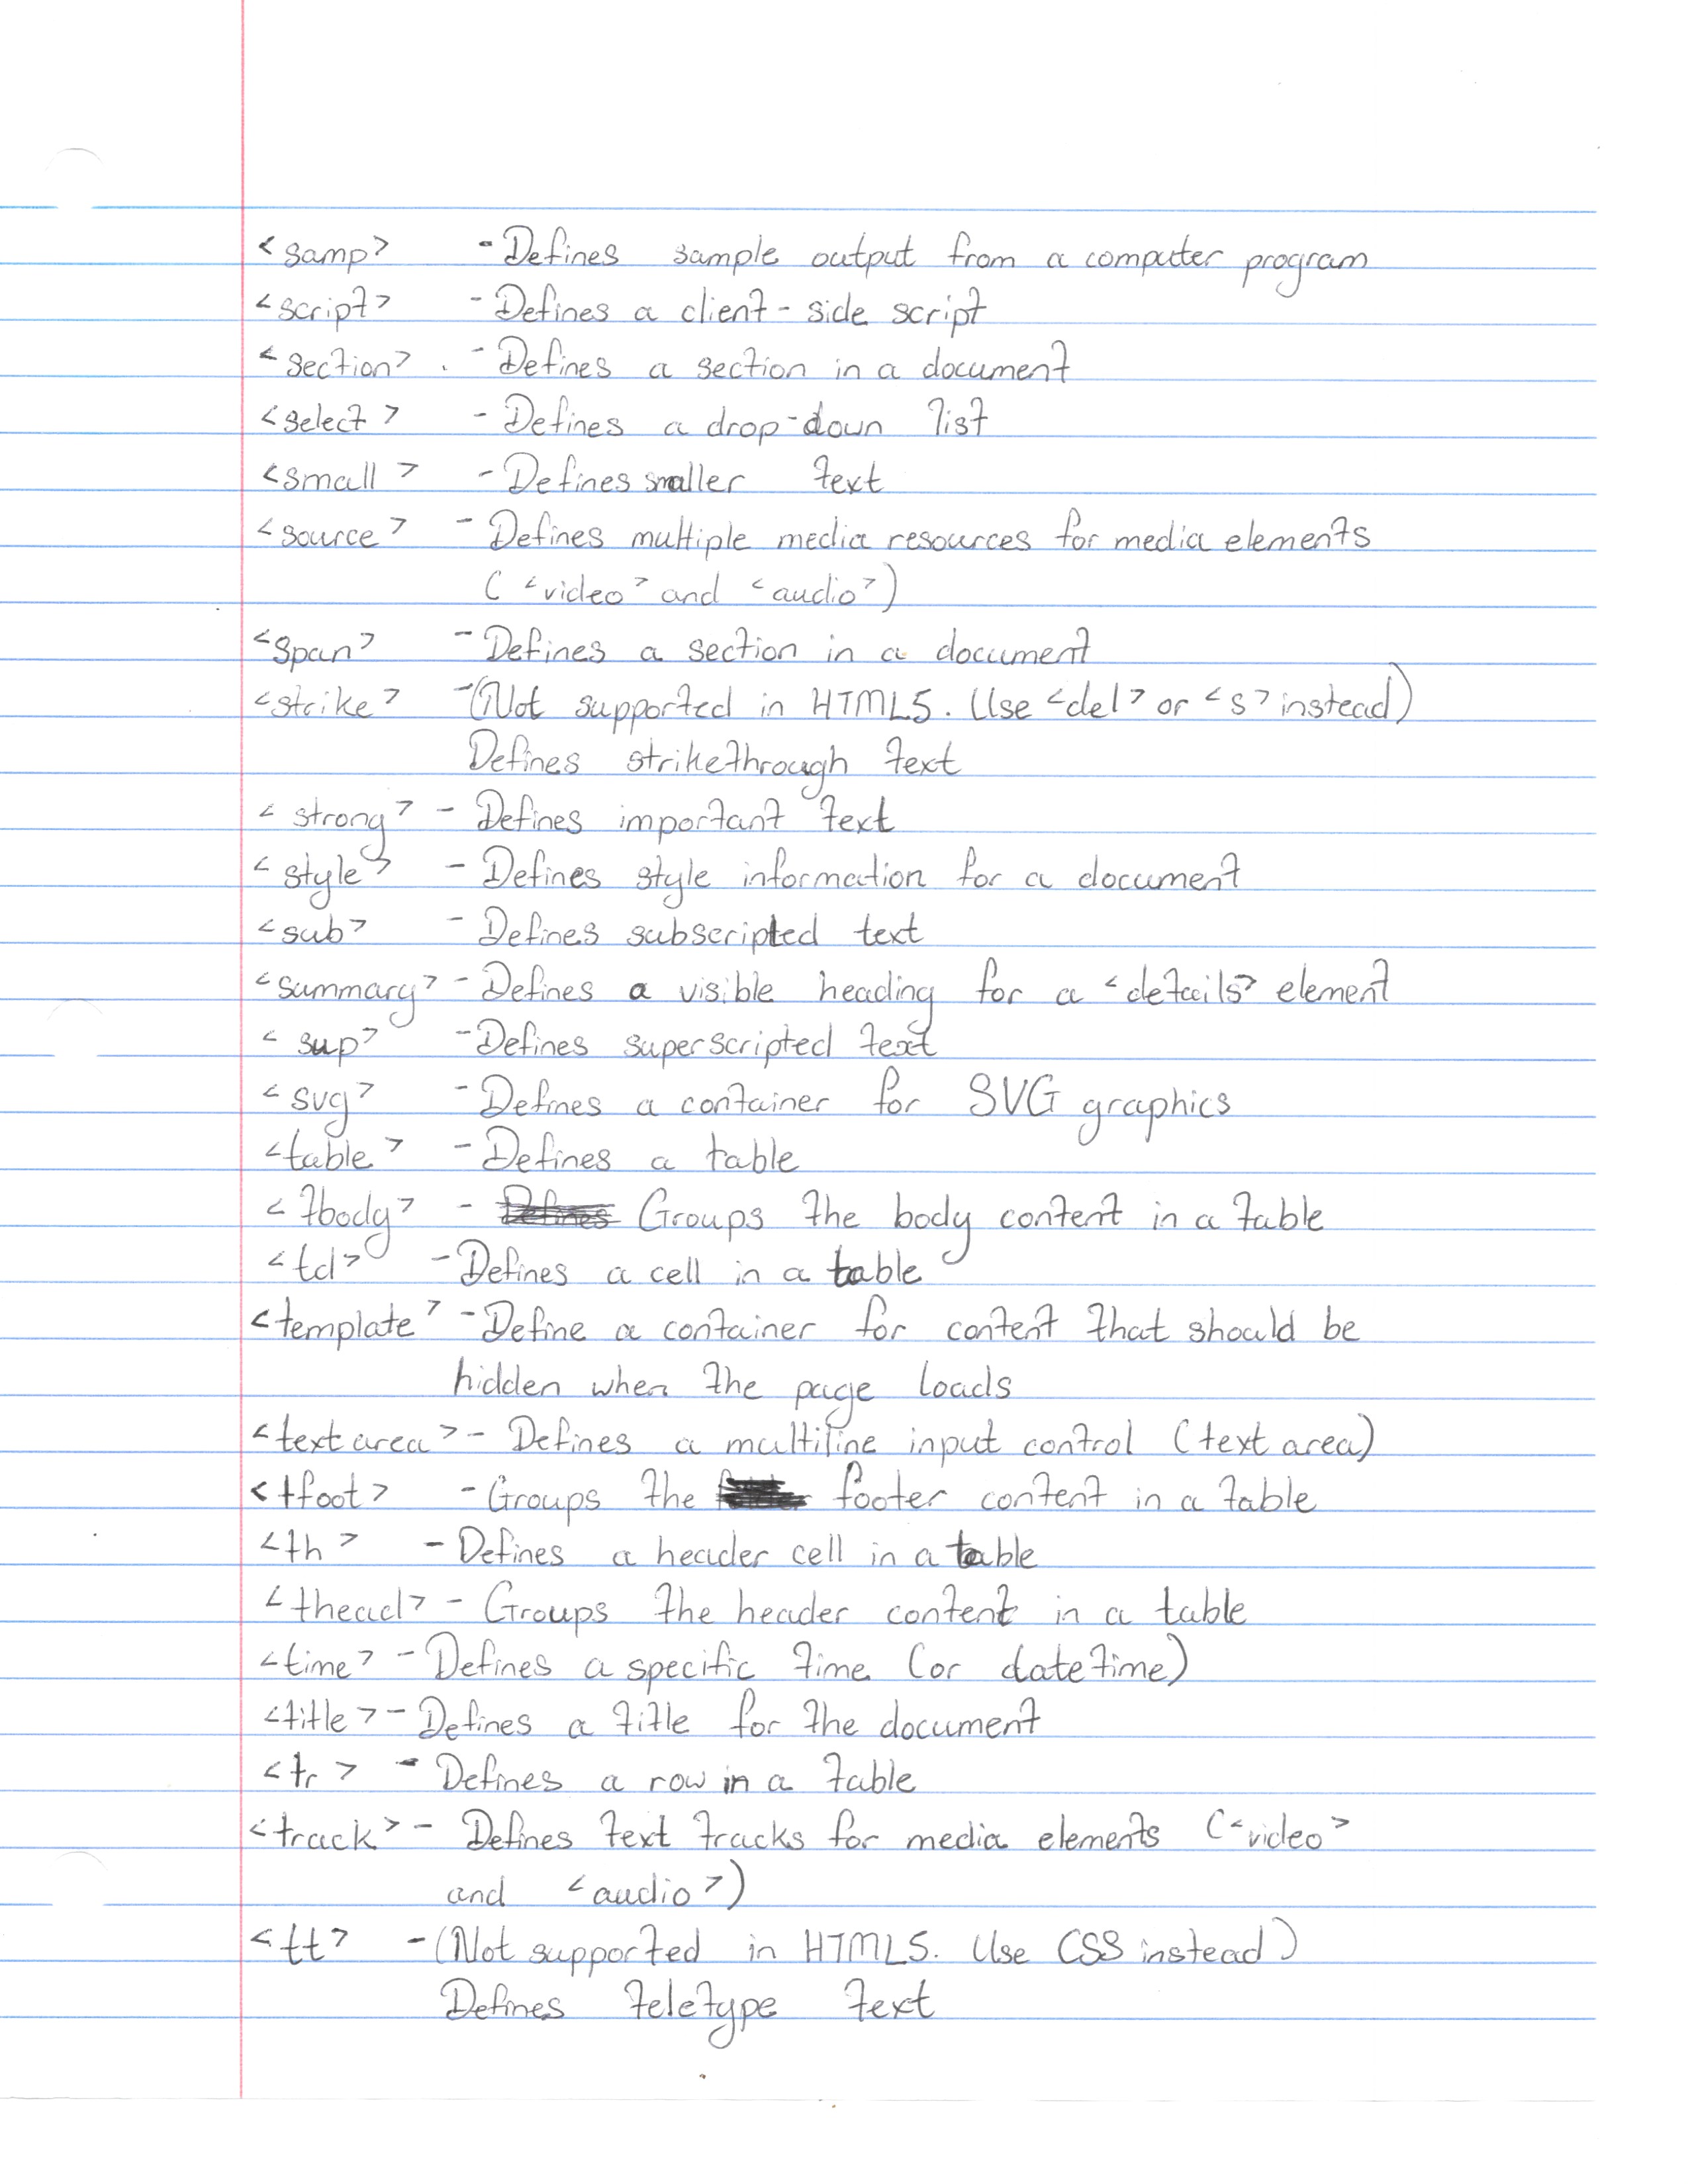 <samp> - Defines sample output from a computer program
<script> - Defines a client-side script
<section> - Defines a section in a document
<select> - Defines a drop-down list
<small> - Defines smaller text
<source> - Defines multiple media resources for media elements
(<video> and <audio>)
<span> - Defines a section in a document
<strike> - (Not supported in HTML5. Use <del> or <s> instead)
Defines strikethrough text
<strong> - Defines important text
<style> - Defines style information for a document
<sub> - Defines subscripted text
<summary> - Defines a visible heading for a <details> element
<sup> - Defines superscripted text
<svg> - Defines a container for SVG graphics
<table> - Defines a table
<tbody> - Defines Groups the body content in a table
<td> - Defines a cell in a table
<template> - Define a container for content that should be
hidden when the page loads
<textarea> - Defines a multiline input control (text area)
<tfoot> - Groups the footer content in a table
<th> - Defines a header cell in a table
<thead> - Groups the header content in a table
<time> - Defines a specific time (or datetime)
<title> - Defines a title for the document
<tr> - Defines a row in a table
<track> - Defines text tracks for media elements (<video>
and <audio>)
<tt> - (Not supported in HTML5. Use CSS instead)
Defines teletype text